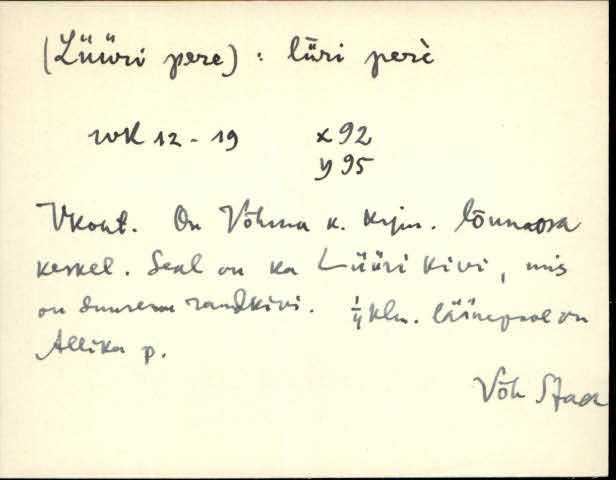 (Lüüri pere) : lüri perè
wk 12 - 19 x 92
y 95
Vkont. On Võhma k. krjm. lõunaosa
keskel. Seal on ka Lüüri kivi, mis
on suurem randkivi. 1/4 klm. läänepool on
Allika p.
Võh Staer